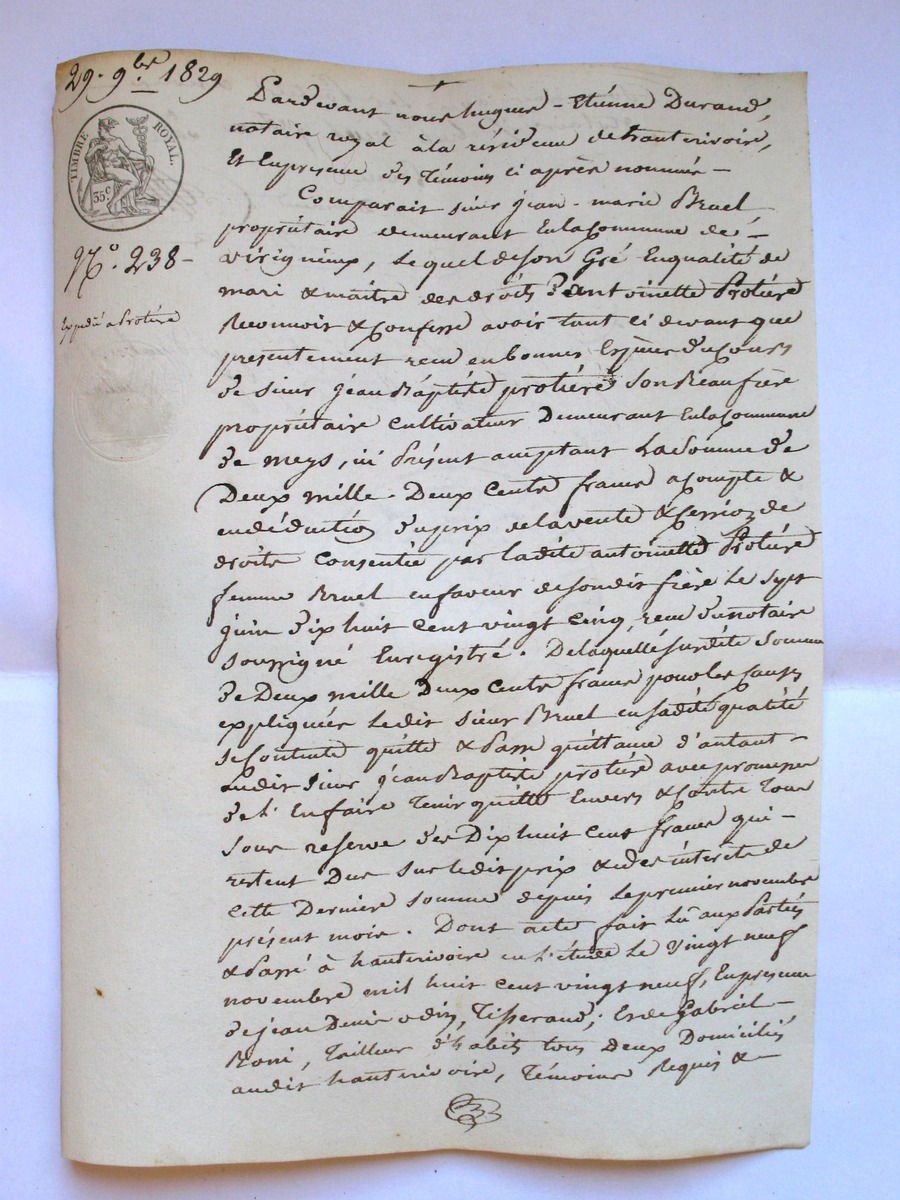 29. 9bre 1829
TIMBRE ROYAL.
35c
N.o 238-
Expédié a Protière
Pardevant nous hugues - Etiénne Durand,
notaire royal à la résidence de hauterivoire,
Et En presence des Témoins ci après nommés -
Comparait sieur jean - marie Bruel
propriétaire demeurant En la Commune de -
virigneux, Lequel de son Gré En qualité de
mari & maitre des droits d'antoinette Protière
Reconnoit & Confesse avoir tant ci devant que
présentement recu en bonnes Espèces du Cours
de sieur jean Baptiste protière son Beau frère
propriétaire Cultivateur Demeurant En la Commune
de meys, ici Présent acceptant La Somme de
Deux mille Deux Cents francs a Compte &
en déduction du prix de la vente & Cession de
droits Consentie par ladite antoinette Protière
femme Bruel en faveur de son dit frère Le Sept
juin dix huit Cent vingt Cinq, recu du notaire
soussigné Enregistré. De laquelle susdite Somme
de Deux mille Deux Cents francs pour les Causes
expliquées Ledit sieur Bruel en sadite qualité
se Contente quitte & Passe quittance d'autant -
audit sieur jean Baptiste protière avec promesse
de l'En faire Tenir quitte Envers & Contre Tous
sous reserve des Dix huit Cent francs qui -
restent Dus sur ledit prix & des intérêts de
Cette Dernière somme depuis le premier novembre
présent mois. Dont acte fait Lû aux Parties
& Passé à hauterivoire en l'étude Le Vingt neuf
novembre mil huit Cent vingt neuf, En presence
de jean Denis odin, Tisserand, Et de Gabriel -
Roni, Tailleur d'habits tous Deux Domiciliés
audit hauterivoire, Témoins Requis & -